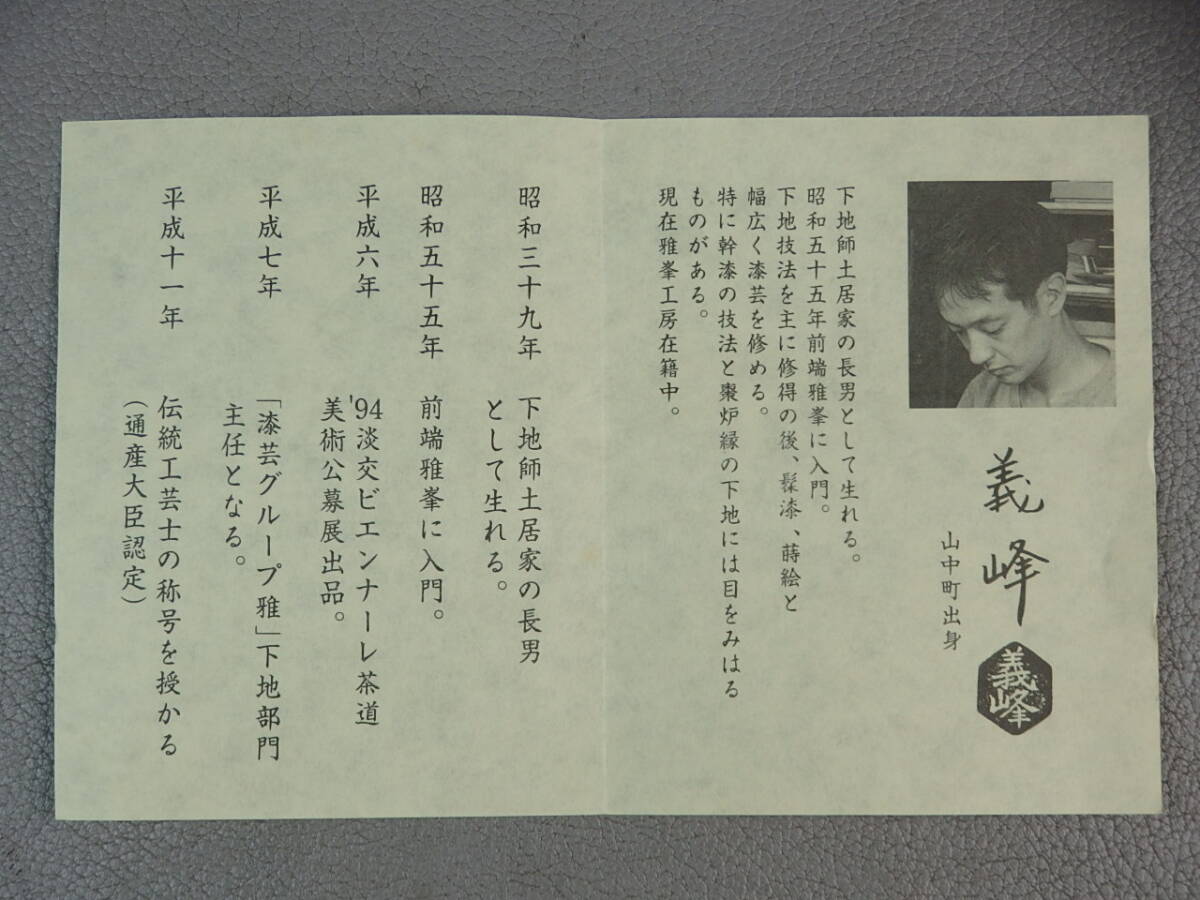 義峰
義峰
山中町出身
下地師土居家の長男として生れる。
昭和五十五年前端雅峯に入門。
下地技法を主に修得の後、髹漆、蒔絵と
幅広く漆芸を修める。
特に幹漆の技法と棗炉縁の下地には目をみはる
ものがある。
現在雅峯工房在籍中。
昭和三十九年 下地師土居家の長男
として生れる。
昭和五十五年 前端雅峯に入門。
平成六年 '94淡交ビエンナーレ茶道
美術公募展出品。
平成七年 「漆芸グループ雅」下地部門
主任となる。
平成十一年 伝統工芸士の称号を授かる
（通産大臣認定）